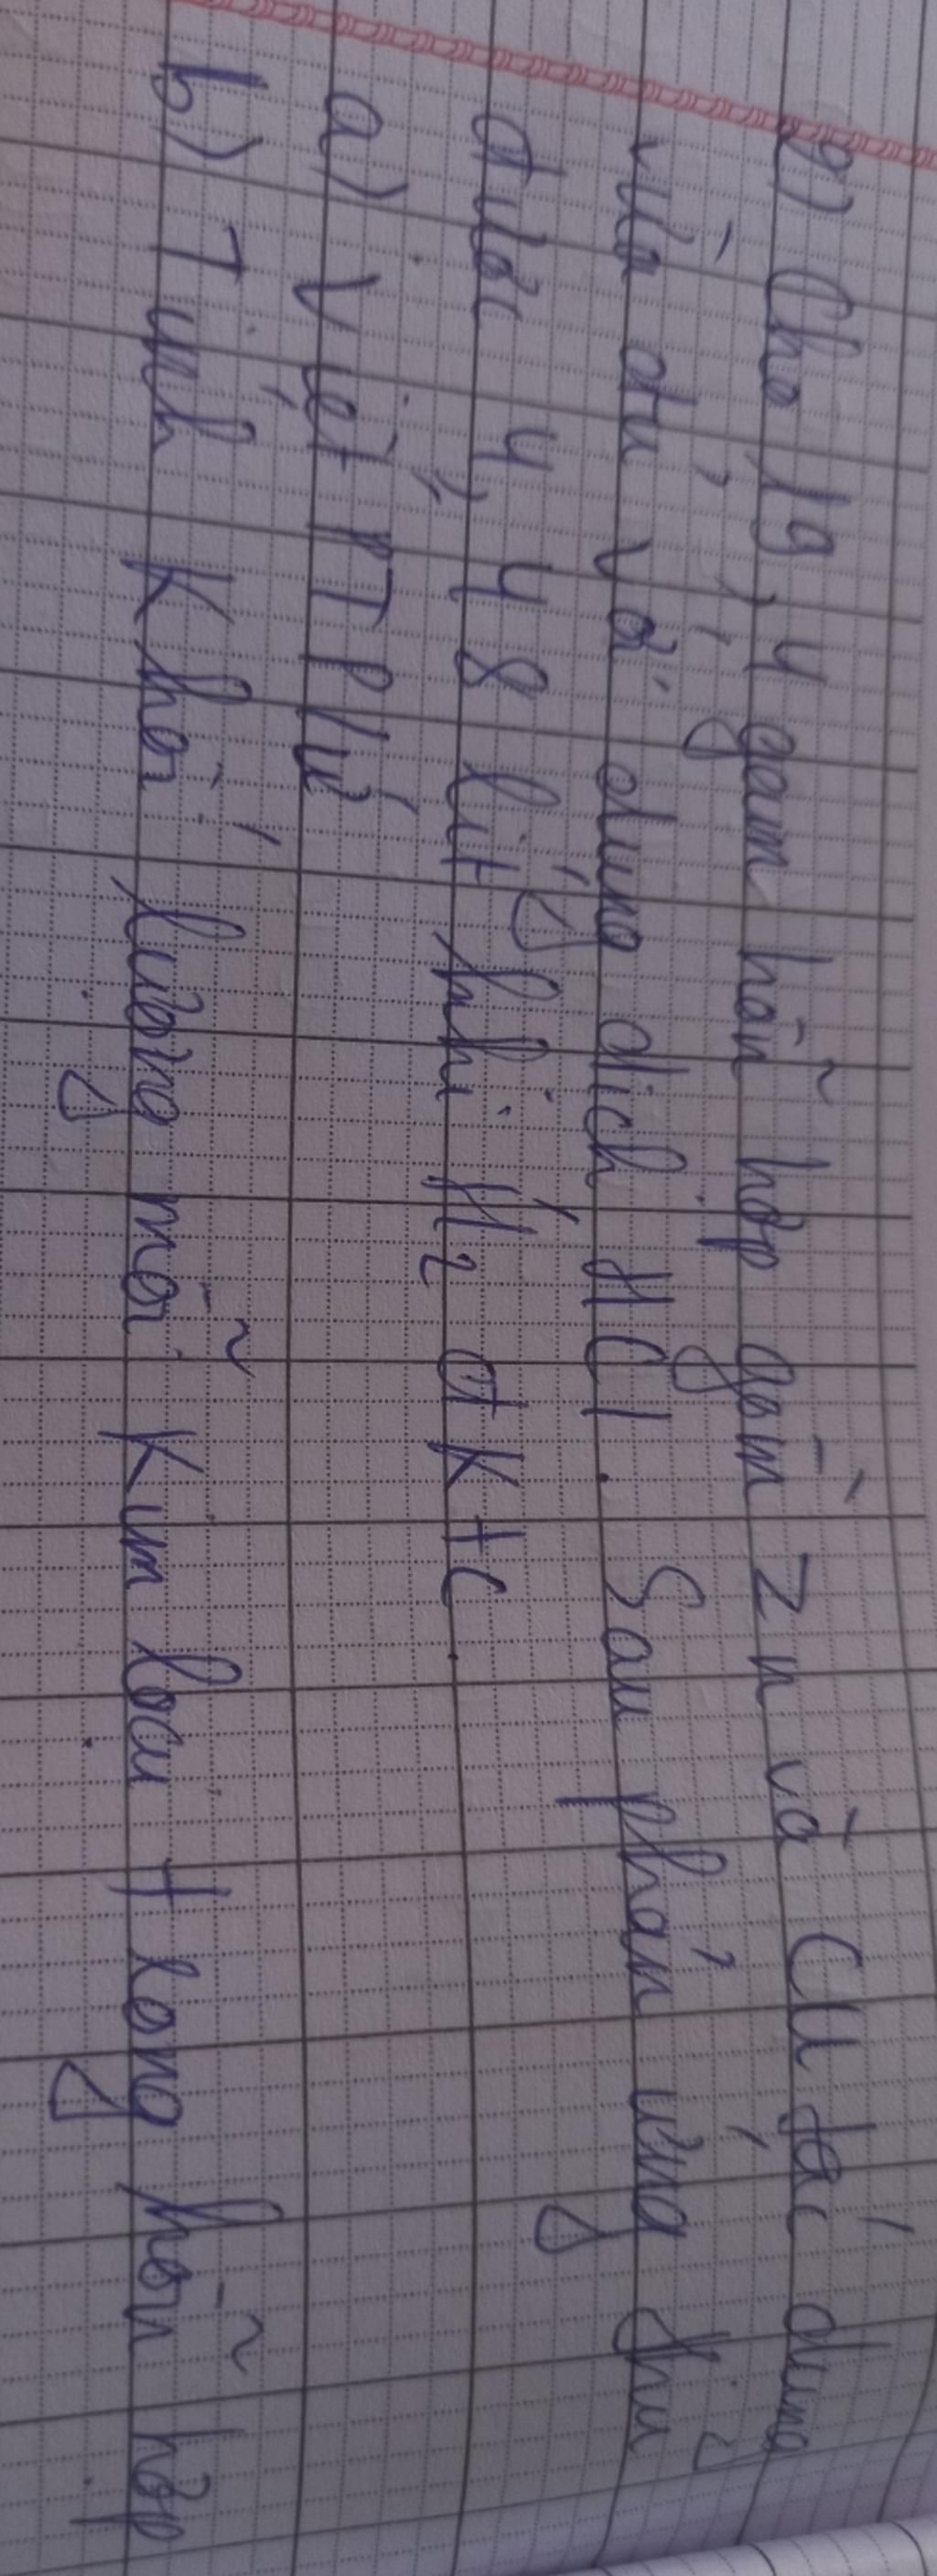 2) Cho 19,4 gam hỗn hợp gồm Zn và Cu tác dụng
vừa đủ với dung dịch HCl. Sau phản ứng thu
được 4,48 lít khí H2 đktc.
a) Viết PTPƯ
b) Tính Khối lượng mỗi Kim loại trong hỗn hợp